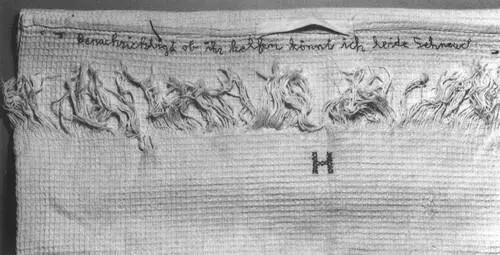 Benachrichtigt ob ihr helfen könnt ich leide Schwer
H